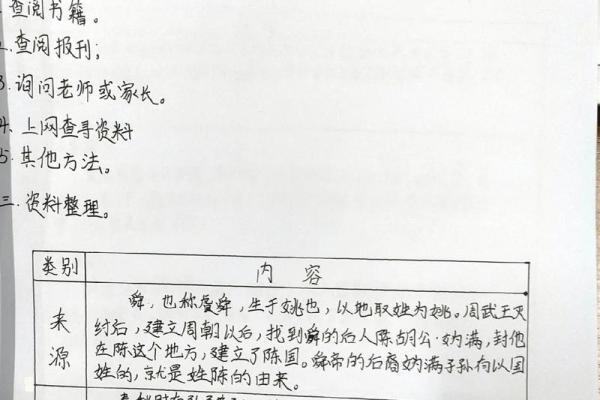 查阅书籍。
2.查阅报刊；
3.询问老师或家长。
4、上网查寻资料
5.其他方法。
三.资料整理。
类别 内容
来源
舜，也称虞舜，生于姚也，以地取姓为姚。周武王灭
纣后，建立周朝以后，找到舜的后人陈胡公·妫满，封他
在陈这个地方，建立了陈国。舜帝的后裔妫满子孙有以国
姓的，就是姓陈的由来。